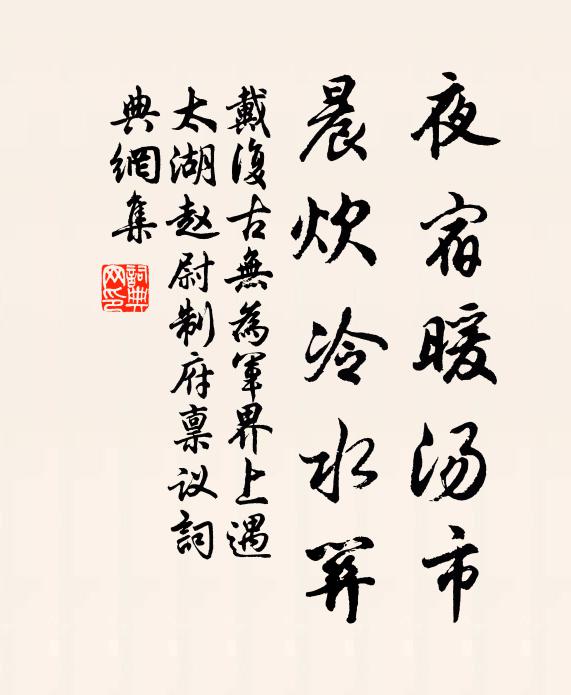 夜宿暖汤市
晨炊冷水井
戴復古無為軍界上遇
太湖赵尉制府禀议詞
典網集
詞典网印